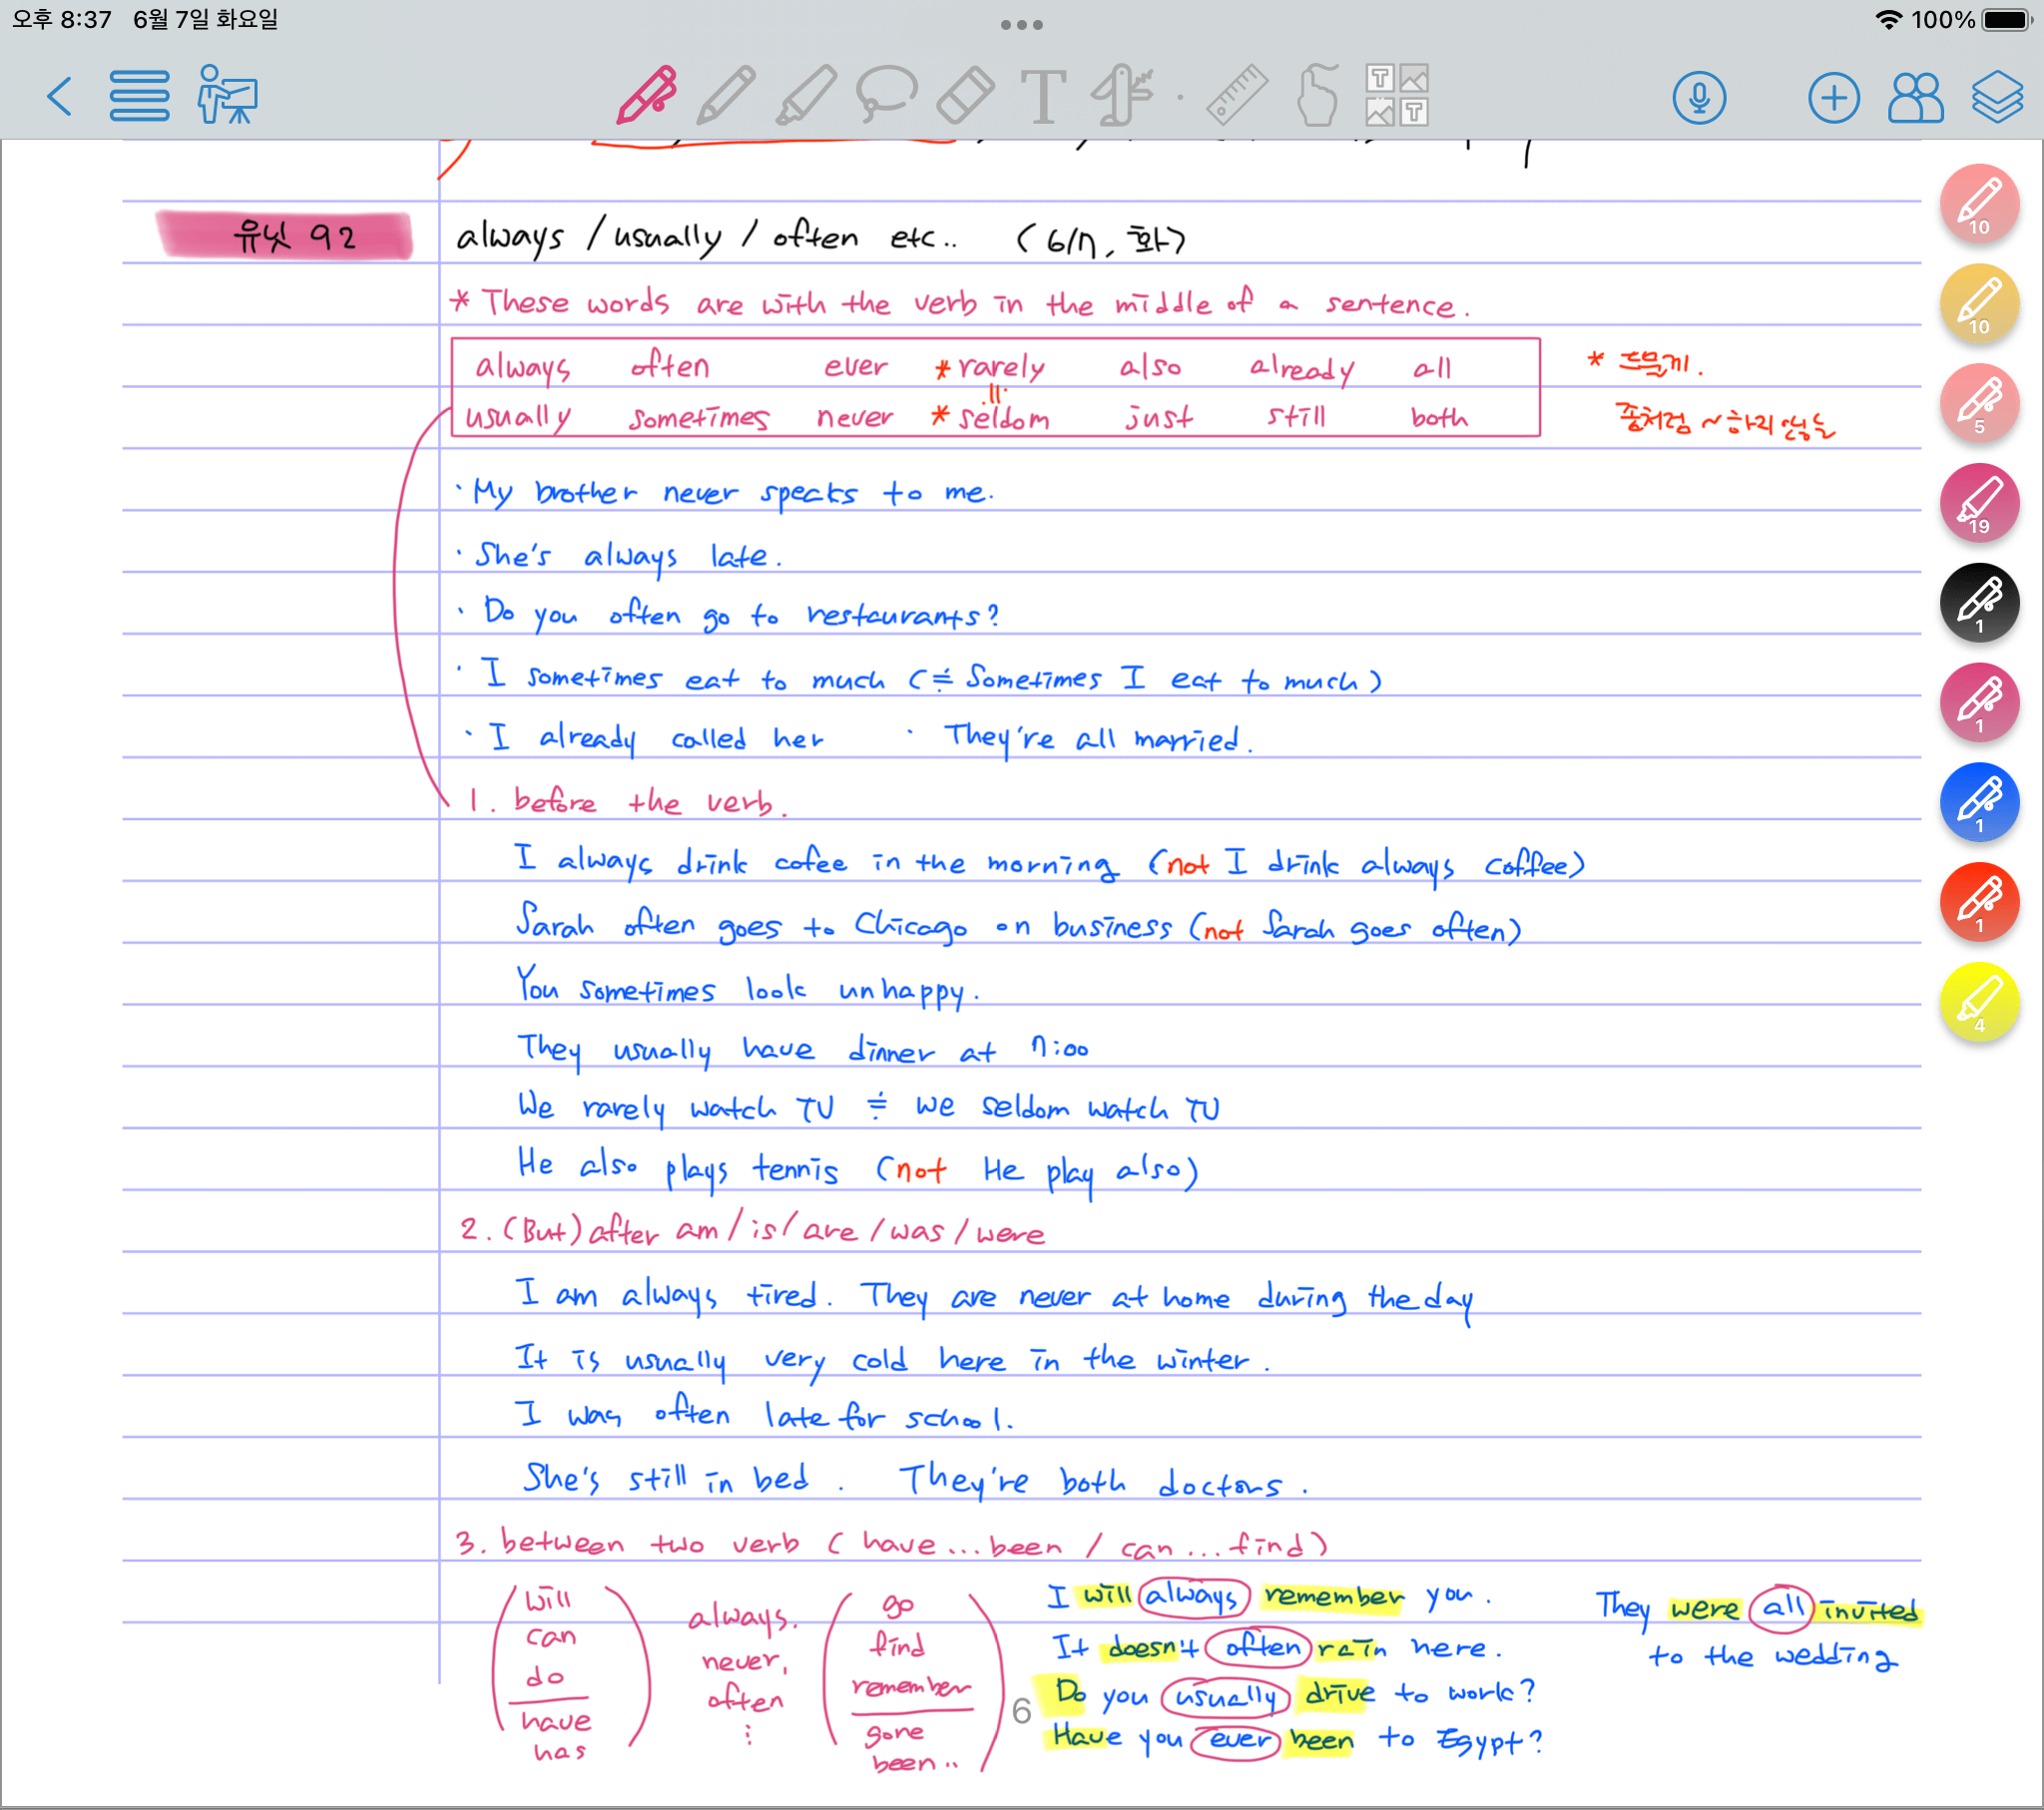 오후 8:37 6월 7일 화요일
100%
유닛 92
always / usually / often etc.. (6/7, 화)
* These words are with the verb in the middle of a sentence.
always often ever * rarely also already all
* 드물게.
usually sometimes never * seldom just still both
좀처럼 ~하지 않는
· My brother never speaks to me.
· She's always late.
· Do you often go to restaurants?
· I sometimes eat to much (≒ Sometimes I eat to much)
· I already called her · They're all married.
1. before the verb.
I always drink cofee in the morning (not I drink always coffee)
Sarah often goes to Chicago on business (not Sarah goes often)
You sometimes look unhappy.
They usually have dinner at 7:00
We rarely watch TV ≒ we seldom watch TV
He also plays tennis (not He play also)
2. (But) after am / is / are / was / were
I am always tired. They are never at home during the day
It is usually very cold here in the winter.
I was often late for school.
She's still in bed. They're both doctors.
3. between two verb (have... been / can ... find)
will
can
do
have
has
always.
never,
often
⋮
go
find
remember
gone
been..
I will always remember you.
It doesn't often rain here.
Do you usually drive to work?
Have you ever been to Egypt?
They were all invited
to the wedding
6
10
10
5
19
1
1
1
1
4